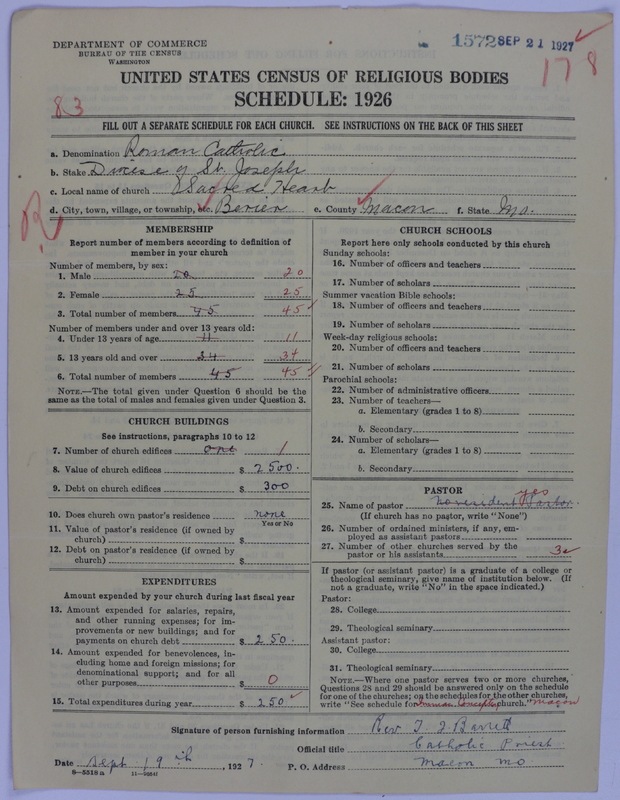 DEPARTMENT OF COMMERCE
BUREAU OF THE CENSUS
WASHINGTON
1572 SEP 21 1927
178
UNITED STATES CENSUS OF RELIGIOUS BODIES
SCHEDULE: 1926
83
FILL OUT A SEPARATE SCHEDULE FOR EACH CHURCH. SEE INSTRUCTIONS ON THE BACK OF THIS SHEET
a. Denomination Roman Catholic
b. Stake Diocese of St. Joseph
c. Local name of church Sacred Heart
d. City, town, village, or township, etc. Bevier e. County Macon f. State Mo.
R
MEMBERSHIP
Report number of members according to definition of member in your church
Number of members, by sex:
1. Male 20 20
2. Female 25 25
3. Total number of members 45 45
Number of members under and over 13 years old:
4. Under 13 years of age 11 11
5. 13 years old and over 34 34
6. Total number of members 45 45
NOTE.—The total given under Question 6 should be
same as the total of males and females given under Question 3.
CHURCH BUILDINGS
See instructions, paragraphs 10 to 12
7. Number of church edifices one 1
8. Value of church edifices $ 2500.
9. Debt on church edifices $ 300
10. Does church own pastor's residence none
Yes or No
11. Value of pastor's residence (if owned by
church) $
12. Debt on pastor's residence (if owned by
church) $
EXPENDITURES
Amount expended by your church during last fiscal year
13. Amount expended for salaries, repairs,
and other running expenses; for im-
provements or new buildings; and for
payments on church debt $ 250.
14. Amount expended for benevolences, in-
cluding home and foreign missions; for
denominational support; and for all
other purposes $ 0
15. Total expenditures during year $ 250
CHURCH SCHOOLS
Report here only schools conducted by this church
Sunday schools:
16. Number of officers and teachers
17. Number of scholars
Summer vacation Bible schools:
18. Number of officers and teachers
19. Number of scholars
Week-day religious schools:
20. Number of officers and teachers
21. Number of scholars
Parochial schools:
22. Number of administrative officers
23. Number of teachers—
a. Elementary (grades 1 to 8)
b. Secondary
24. Number of scholars—
a. Elementary (grades 1 to 8)
b. Secondary
PASTOR
yes
25. Name of pastor No resident Pastor
(If church has no pastor, write "None")
26. Number of ordained ministers, if any, em-
ployed as assistant pastors
27. Number of other churches served by the
pastor or his assistants 3
If pastor (or assistant pastor) is a graduate of a college or
theological seminary, give name of institution below. (If
not a graduate, write "No" in the space indicated.)
Pastor:
28. College
29. Theological seminary
Assistant pastor:
30. College
31. Theological seminary
NOTE.—Where one pastor serves two or more churches,
Questions 28 and 29 should be answered only on the schedule
for one of the churches; on the schedules for the other churches,
write "See schedule for church." Macon
Signature of person furnishing information Rev. Barrett
Official title Catholic Priest
Date Sept 19th, 1927. P. O. Address Macon Mo
8—5518 a